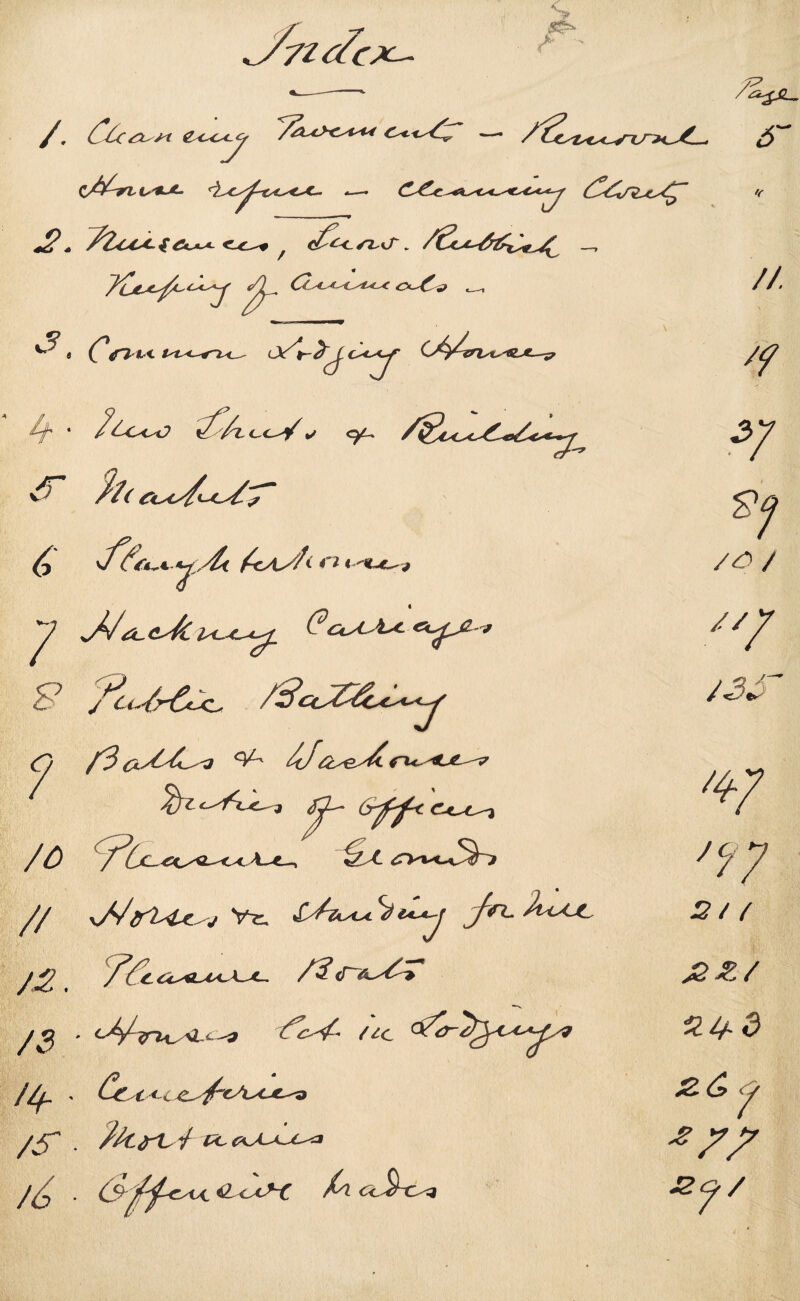 Index
Page
1. Cleaning Pavement — Removal 5
House refuse — Cleaning Closet "
2. Nuisances, Snow. Rubbish —
Keeping of Animals — 11.
3. Common Lodging Houses 19
4. New Streets & Building 37
5 Markets 89
6 Slaughterhouses 101
7 Hackney Carriages 117
8 Public Bathing 135
9 Baths & Washhouses
Duties of Officers 147
10 Pleasure Grounds 197
11 Horses &c. Standing for Hire 211
12. Pleasure Boats 221
13. Houses let in Lodgings 243
14. Cemeteries 269
15. Mortuaries 277
16. Offensive Trades 291